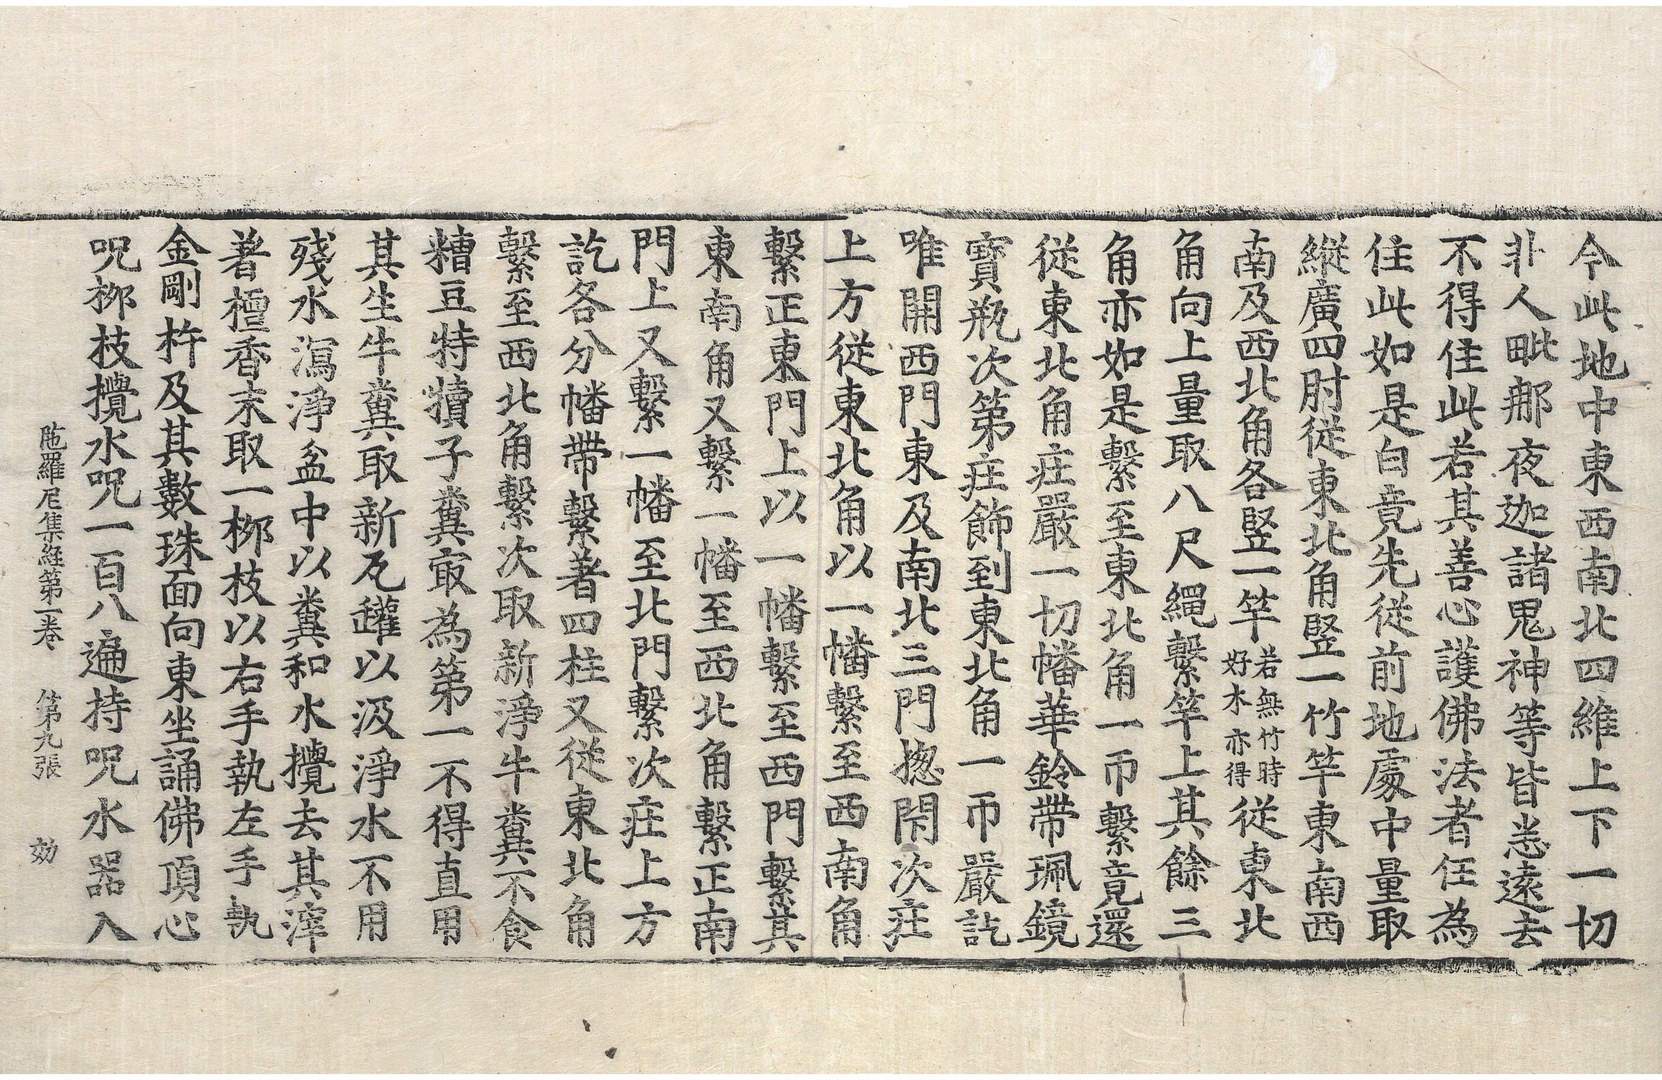 今此地中東西南北四維上下一切
非人毗那夜迦諸鬼神等皆悉遠去
不得住此若其善心護佛法者任為
住此如是白竟先從前地處中量取
縱廣四肘從東北角竪一竹竿東南西
南及西北角各竪一竿若無竹時好木亦得從東北
角向上量取八尺繩繫竿上其餘三
角亦如是繫至東北角一帀繫竟還
從東北角庄嚴一切幡華鈴帶珮鏡
寶瓶次第庄飾到東北角一帀嚴訖
唯開西門東及南北三門揔閇次庄
上方從東北角以一幡繫至西南角
繫正東門上以一幡繫至西門繫其
東南角又繫一幡至西北角繫正南
門上又繫一幡至北門繫次庄上方
訖各分幡帶繫著四柱又從東北角
繫至西北角繫次取新淨牛糞不食
糟豆特犢子糞㝡為第一不得直用
其生牛糞取新瓦罐以汲淨水不用
殘水瀉淨盆中以糞和水攪去其滓
著檀香末取一枊枝以右手執左手執
金剛杵及其數珠面向東坐誦佛頂心
呪枊枝攪水呪一百八遍持呪水器入
陁羅尼集経第一卷　第九張　効